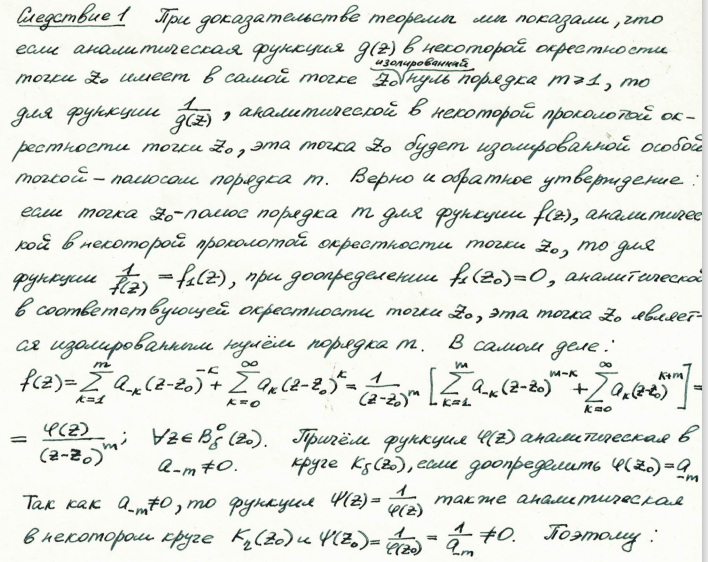 Следствие 1 При доказательстве теоремы мы показали, что
если аналитическая функция g(z) в некоторой окрестности
точки z₀ имеет в самой точке z₀ изолированный нуль порядка m≥1, то
для функции 1/g(z), аналитической в некоторой проколотой ок-
рестности точки z₀, эта точка z₀ будет изолированной особой
точкой – полюсом порядка m. Верно и обратное утверждение:
если точка z₀-полюс порядка m для функции f(z), аналитичес
кой в некоторой проколотой окрестности точки z₀, то для
функции 1/f(z) = f₁(z), при доопределении f₁(z₀)=0, аналитической
в соответствующей окрестности точки z₀, эта точка z₀ являет-
ся изолированным нулём порядка m. В самом деле:
f(z)=∑_{k=1}^{m} a₋ₖ(z-z₀)^{-k} + ∑_{k=0}^{∞} aₖ(z-z₀)^k = 1/(z-z₀)^m [∑_{k=1}^{m} a₋ₖ(z-z₀)^{m-k} + ∑_{k=0}^{∞} aₖ(z-z₀)^{k+m}] =
= φ(z)/(z-z₀)^m; ∀z∈B⁰_δ(z₀). Причём функция φ(z) аналитическая в
a₋ₘ≠0. круге K_δ(z₀), если доопределить φ(z₀)=a₋ₘ
Так как a₋ₘ≠0, то функция ψ(z) = 1/φ(z) также аналитическая
в некотором круге K_η(z₀) и ψ(z₀)= 1/φ(z₀) = 1/a₋ₘ ≠0. Поэтому: